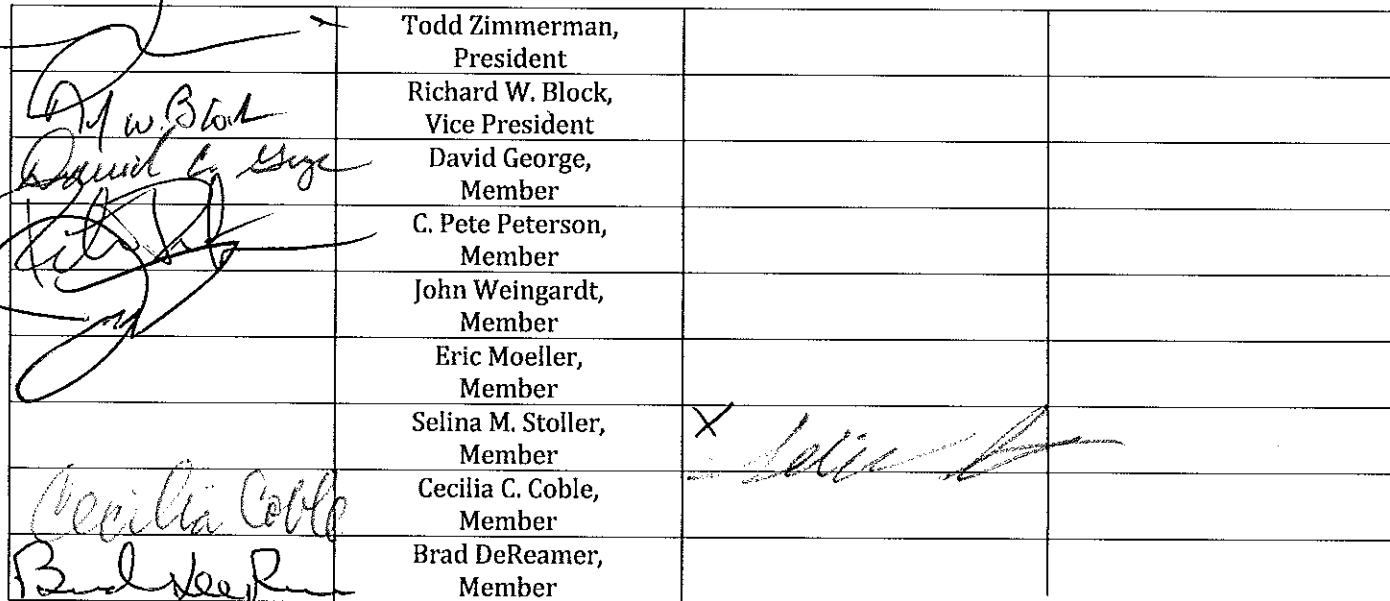 Todd Zimmerman,
President
W. Block
Richard W. Block,
Vice President
David
David George,
Member
C. Pete Peterson,
Member
John Weingardt,
Member
Eric Moeller,
Member
Selina M. Stoller,
Member
X
Cecilia Coble
Cecilia C. Coble,
Member
Brad
Brad DeReamer,
Member